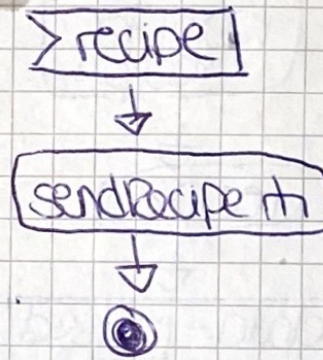 recipe
sendRecipe